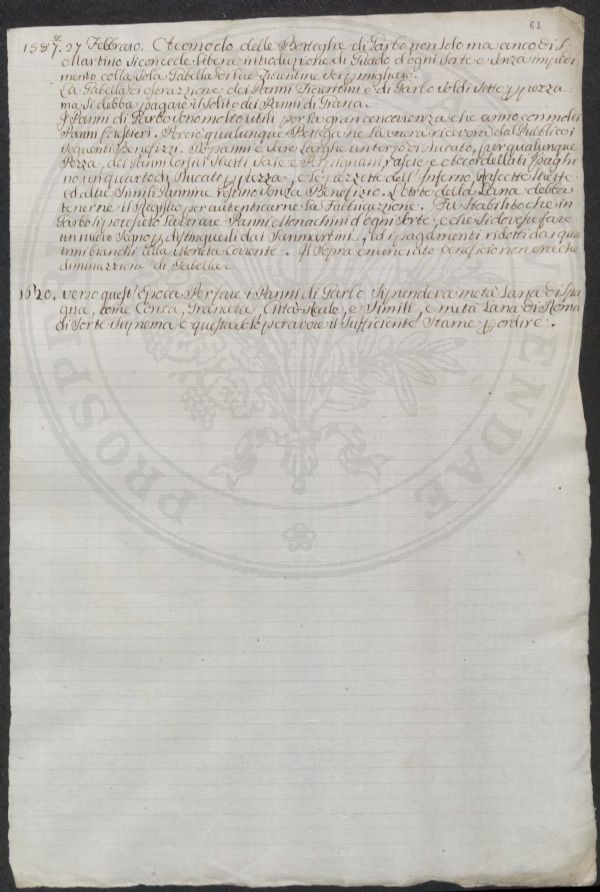 61
1587. 27 Febbraro. A comodo delle Botteghe di Garbo non solo ma anco di S.
Martino si concede libera introduzione di Guado d'ogni sorte e senza impedi-
mento colla sola Gabella di lire
La Gabella d'estrazione dei Panni Fiorentini e di Garbo soldi sette p pezza
ma si debba pagare il solito dei Panni di Grana.
I Panni di Garbo sono molto utili per la gran concorrenza che anno con molti
Panni forestieri. Perciò qualunque Bottega ne lavorerà riceverà dal Pubblico i
seguenti Benefizzi. Rovanni e Saie larghe un terzo di Ducato, per qualunque
Pezza, dei Panni corsivi stretti Saie e Perpignani rascie e accordellati si paghi-
no un quarto di Ducato p pezza, e le pezzette dell'Inferno, rascette strette
ed altre simili Pannine restino senza Benefizio. L'Arte della Lana debba
tenerne il Registro per autenticarne la Fabbricazione. Fu stabilito che in
Garbo si potessero lavorare Panni Monachini d'ogni sorte, e che si dovesse fare
un nuovo segno p distinguerli dai Sanmartini, ed i pagamenti ridotti dai quat-
trini bianchi alla Moneta Corrente. Il sopra enunciato benefizio non era che
diminuzione di Gabella.
1620. verso quest'Epoca Per fare i Panni di Garbo si prendeva metà Lana di Spa-
gna, come Conca, Granata, Città Reale, e Simili, e metà Lana di Roma
di Sorte Suprema e questa p le per avere il sufficiente Stame p ordire.
PROSPERITATI AUGENDAE